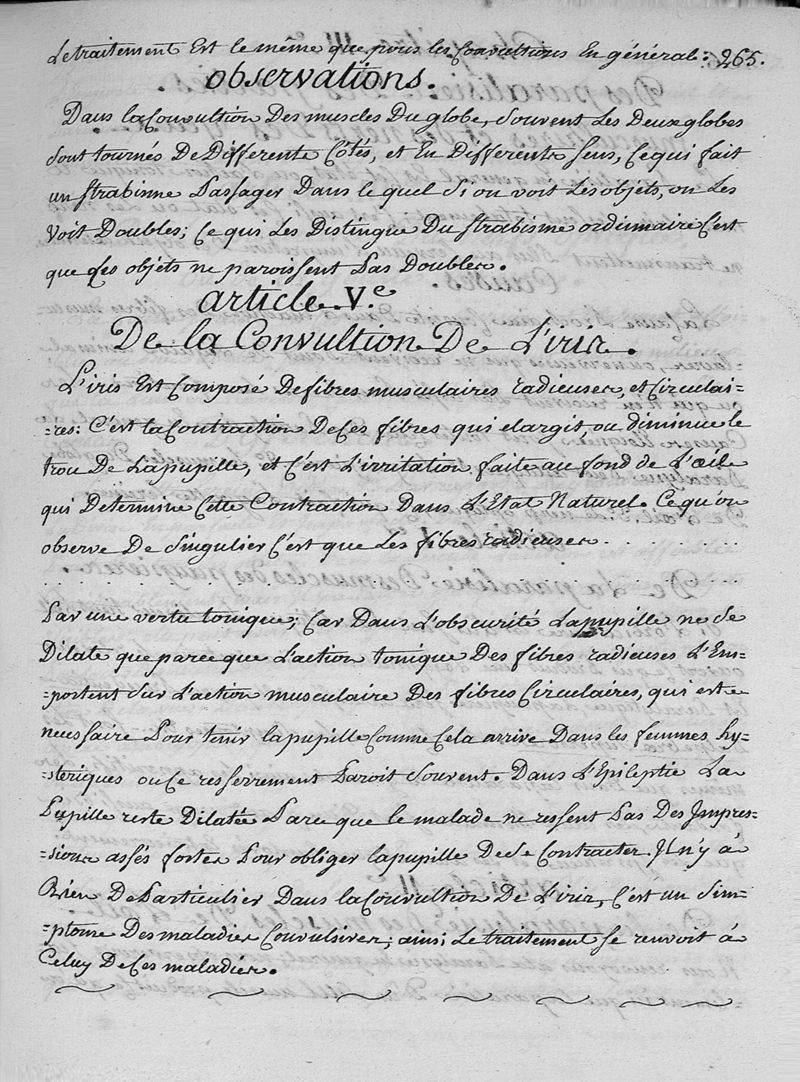 Le traitement Est le même que pour les Convultions En général. 265.
observations.
Dans la Convultion Des muscles Du globe, souvent Les Deux globes
sont tournés De Differente Côtés, et En Differents sens, Ce qui fait
un strabisme Passager Dans le quel Si on voit Les objets, on Les
Voit Doubles; Ce qui Les Distingue Du strabisme ordinnaire C'est
que Les objets ne paroissent Pas Doubles.
article V.e
De la Convultion De L'iris.
L'iris Est Composé De fibres musculaires radieuses, et Circulai=
=res: C'est la Contraction De Ces fibres qui elargit, ou diminue le
trou De La pupille, et C'est L'irritation faite au fond de L'œile
qui Determine Cette Contraction Dans L'Etat Naturel. Ce qu'on
observe De Singulier C'est que Les fibres radieuses . . . . .
. . . . . . . . . . . . . . . . . . . .
Par une vertu tonique; Car Dans L'obscurité La pupille ne se
Dilate que parce que L'action tonique Des fibres radieuses L'Em=
=portent Sur L'action musculaire Des fibres Circulaires, qui est
necessaire Pour tenir la pupille Comme Cela arrive Dans les femmes hy=
=steriques ou Ce resserrement Paroit Souvent. Dans L'Epileptie La
Pupille reste Dilatée Parce que le malade ne ressent Pas Des Impres=
=sions assés fortes Pour obliger la pupille De Se Contracter. Il n'y á
Rien De Particulier Dans la Convultion De L'iris, C'est un Sim=
=ptome Des maladies Convulsives; ainsi Le traitement se renvoit á
Celuy De Ces maladies.